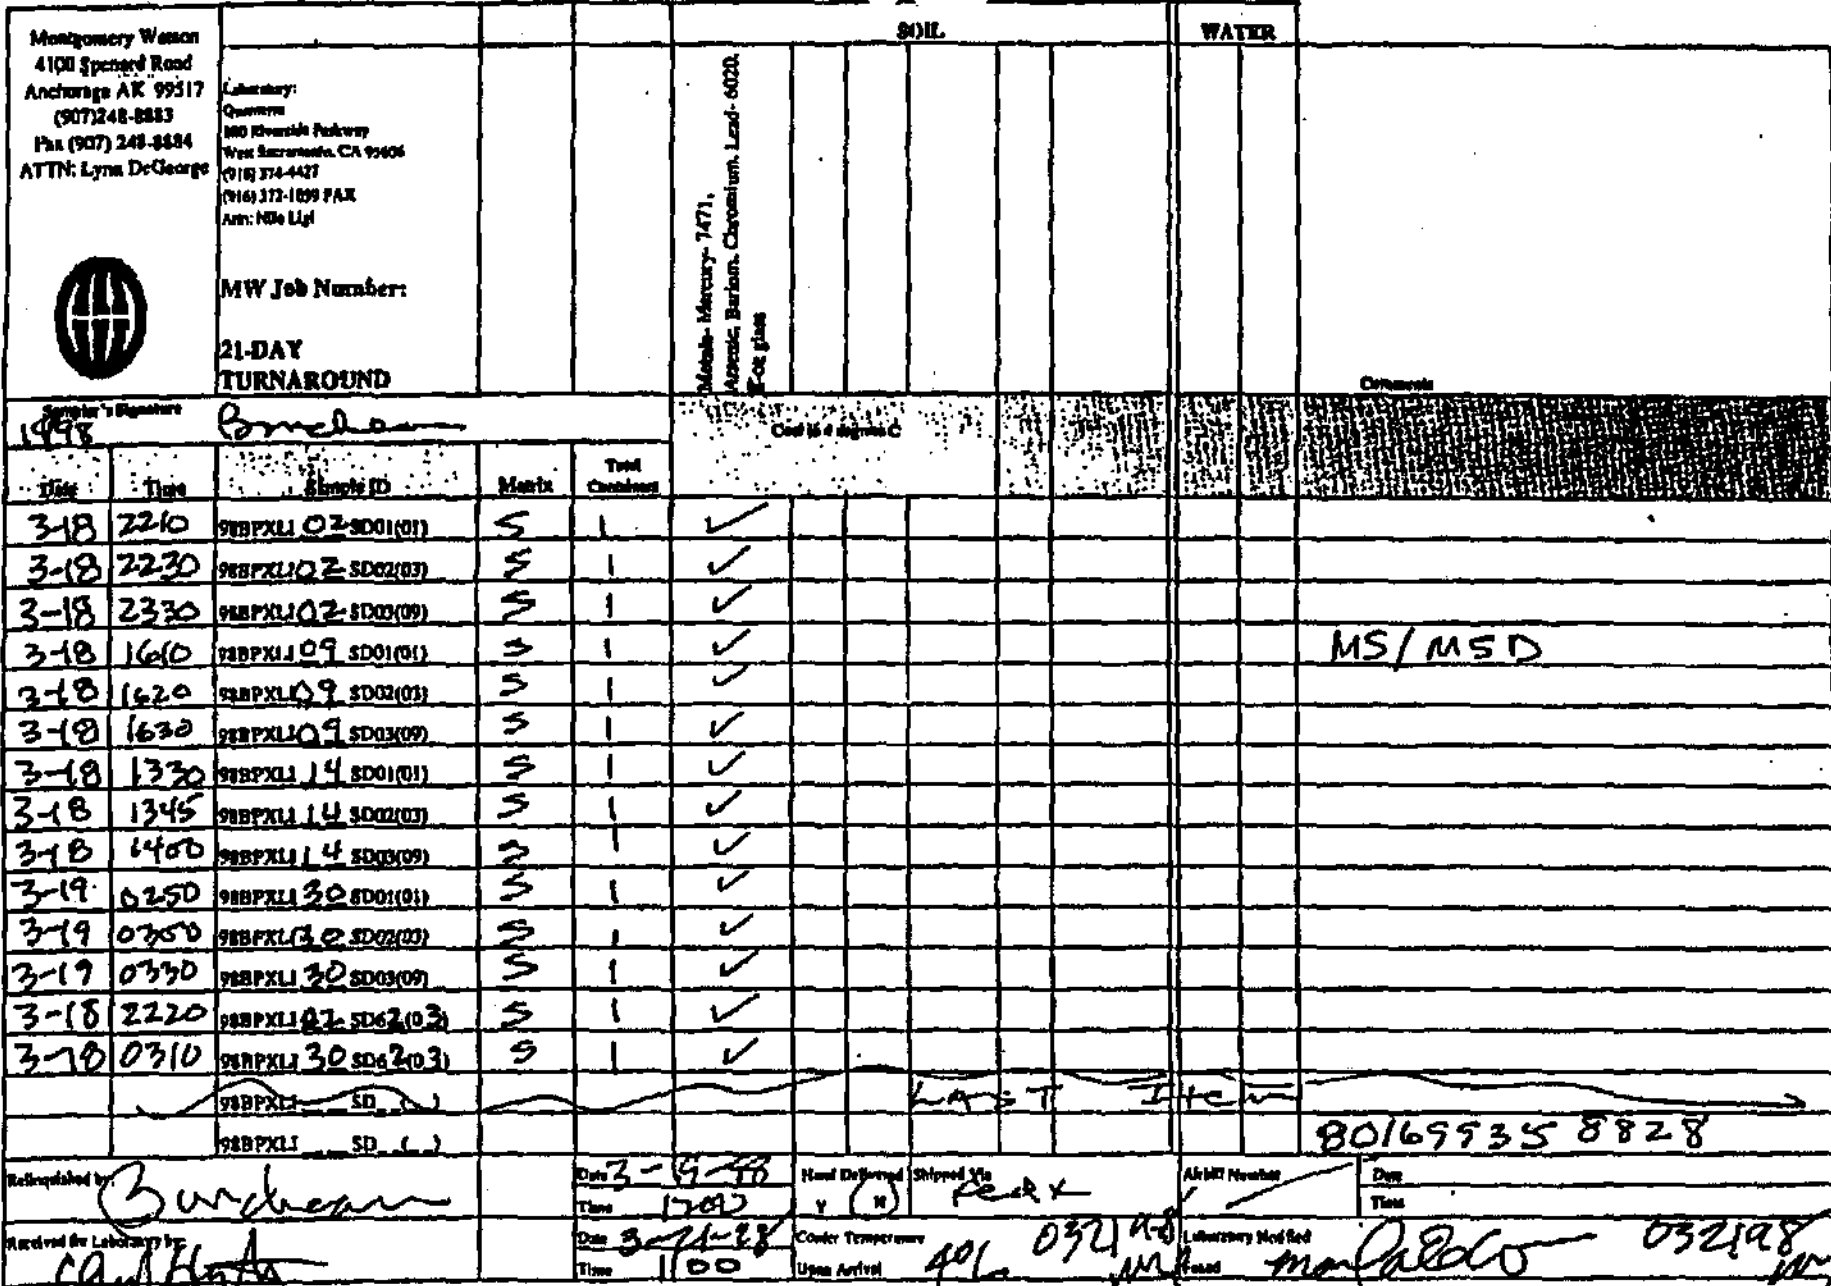 SOIL WATER
Montgomery Watson
4100 Spenard Road
Anchorage AK 99517
(907)248-8883
Fax (907) 248-8884
ATTN: Lynn DeGeorge
Laboratory:
Quanterra
Riverside Parkway
West Sacramento, CA 95606
(916) 374-4427
(916) 372-1059 FAX
Attn:
MW Job Number:
21-DAY
TURNAROUND
Metals- Mercury- 7471,
Arsenic, Barium, Chromium, Lead- 6020,
glass
Comments
Sampler's Signature
1998
Cool to 4 degrees C
Date Time Sample ID Matrix Total Containers
3-18 2210 98BPXLI 02 SD01(01) S 1 ✓
3-18 2230 98BPXLI 02 SD02(03) S 1 ✓
3-18 2330 98BPXLI 02 SD03(09) S 1 ✓
3-18 1610 98BPXLI 09 SD01(01) S 1 ✓ MS/MSD
3-18 1620 98BPXLI 09 SD02(03) S 1 ✓
3-18 1630 98BPXLI 09 SD03(09) S 1 ✓
3-18 1330 98BPXLI 14 SD01(01) S 1 ✓
3-18 1345 98BPXLI 14 SD02(03) S 1 ✓
3-18 1400 98BPXLI 14 SD03(09) S 1 ✓
3-19 0250 98BPXLI 30 SD01(01) S 1 ✓
3-19 0300 98BPXLI 30 SD02(03) S 1 ✓
3-19 0330 98BPXLI 30 SD03(09) S 1 ✓
3-18 2220 98BPXLI 02 SD62(03) S 1 ✓
3-18 0310 98BPXLI 30 SD62(03) S 1 ✓
98BPXLI SD ( ) LAST Item
98BPXLI SD ( ) 801699358828
Relinquished by: Date 3-19-98 Hand Delivered Shipped Via Airbill Number Date
Time 1700 Y N Fed x Time
Received for Laboratory by: Date 3-21-98 Cooler Temperature 032198 Laboratory Notified 032198
Time 1100 Upon Arrival 4°C